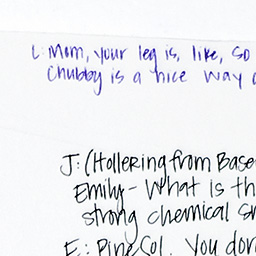 L: Mom, your leg is, like, so
Chubby is a nice way
J: (Hollering from Base
Emily - What is th
strong chemical
E: PineSol. You don